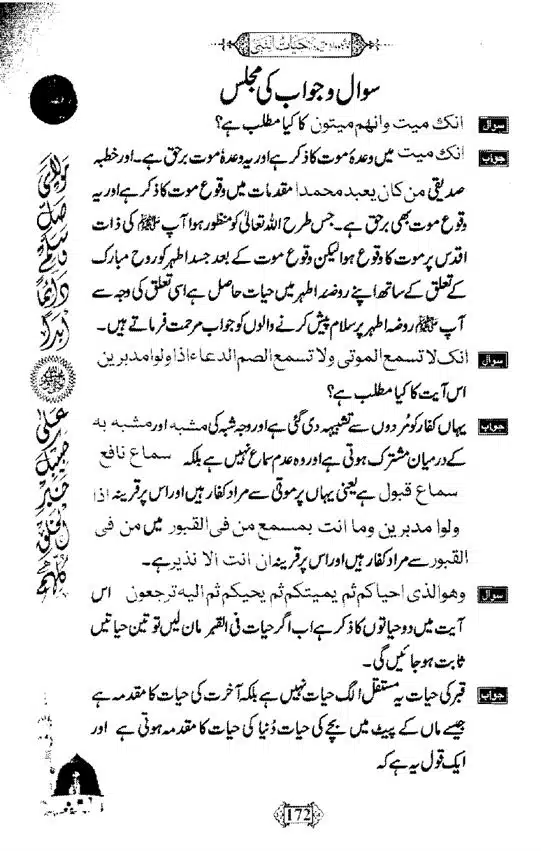 حیات النبی
سوال و جواب کی مجلس
سوال انک میت وانهم میتون کا کیا مطلب ہے؟
جواب انک میت میں وعدۂ موت کا ذکر ہے اور یہ وعدۂ موت برحق ہے۔ اور خطبہ
صدیقی من کان یعبد محمدا مقدمات میں وقوع موت کا ذکر ہے اور یہ
وقوع موت بھی برحق ہے۔ جس طرح اللہ تعالیٰ کو منظور ہوا آپ ﷺ کی ذات
اقدس پر موت کا وقوع ہوا لیکن وقوع موت کے بعد جسد اطہر کو روح مبارک
کے تعلق کے ساتھ اپنے روضہ اطہر میں حیات حاصل ہے اسی تعلق کی وجہ سے
آپ ﷺ روضہ اطہر پر سلام پیش کرنے والوں کو جواب مرحمت فرماتے ہیں۔
سوال انک لا تسمع الموتی ولا تسمع الصم الدعاء اذا ولوا مدبرین
اس آیت کا کیا مطلب ہے؟
جواب یہاں کفار کو مُردوں سے تشبیہ دی گئی ہے اور وجہ شبہ کی مشبہ اور مشبہ بہ
کے درمیان مشترک ہوتی ہے اور وہ عدم سماع نہیں ہے بلکہ سماع نافع
سماع قبول ہے یعنی یہاں پر موتی سے مراد کفار ہیں اور اس پر قرینہ اذا
ولوا مدبرین وما انت بمسمع من فی القبور میں من فی
القبور سے مراد کفار ہیں اور اس پر قرینہ ان انت الا نذیر ہے۔
سوال وهوالذی احیاکم ثم یمیتکم ثم یحیکم ثم الیه ترجعون اس
آیت میں دو حیاتوں کا ذکر ہے اب اگر حیات فی القبر مان لیں تو تین حیاتیں
ثابت ہو جائیں گی۔
جواب قبر کی حیات یہ مستقل الگ حیات نہیں ہے بلکہ آخرت کی حیات کا مقدمہ ہے
جیسے ماں کے پیٹ میں بچے کی حیات دُنیا کی حیات کا مقدمہ ہوتی ہے اور
ایک قول یہ ہے کہ
172
مولای صل وسلم دائما ابدا
علی حبیبک خیر الخلق کلهم